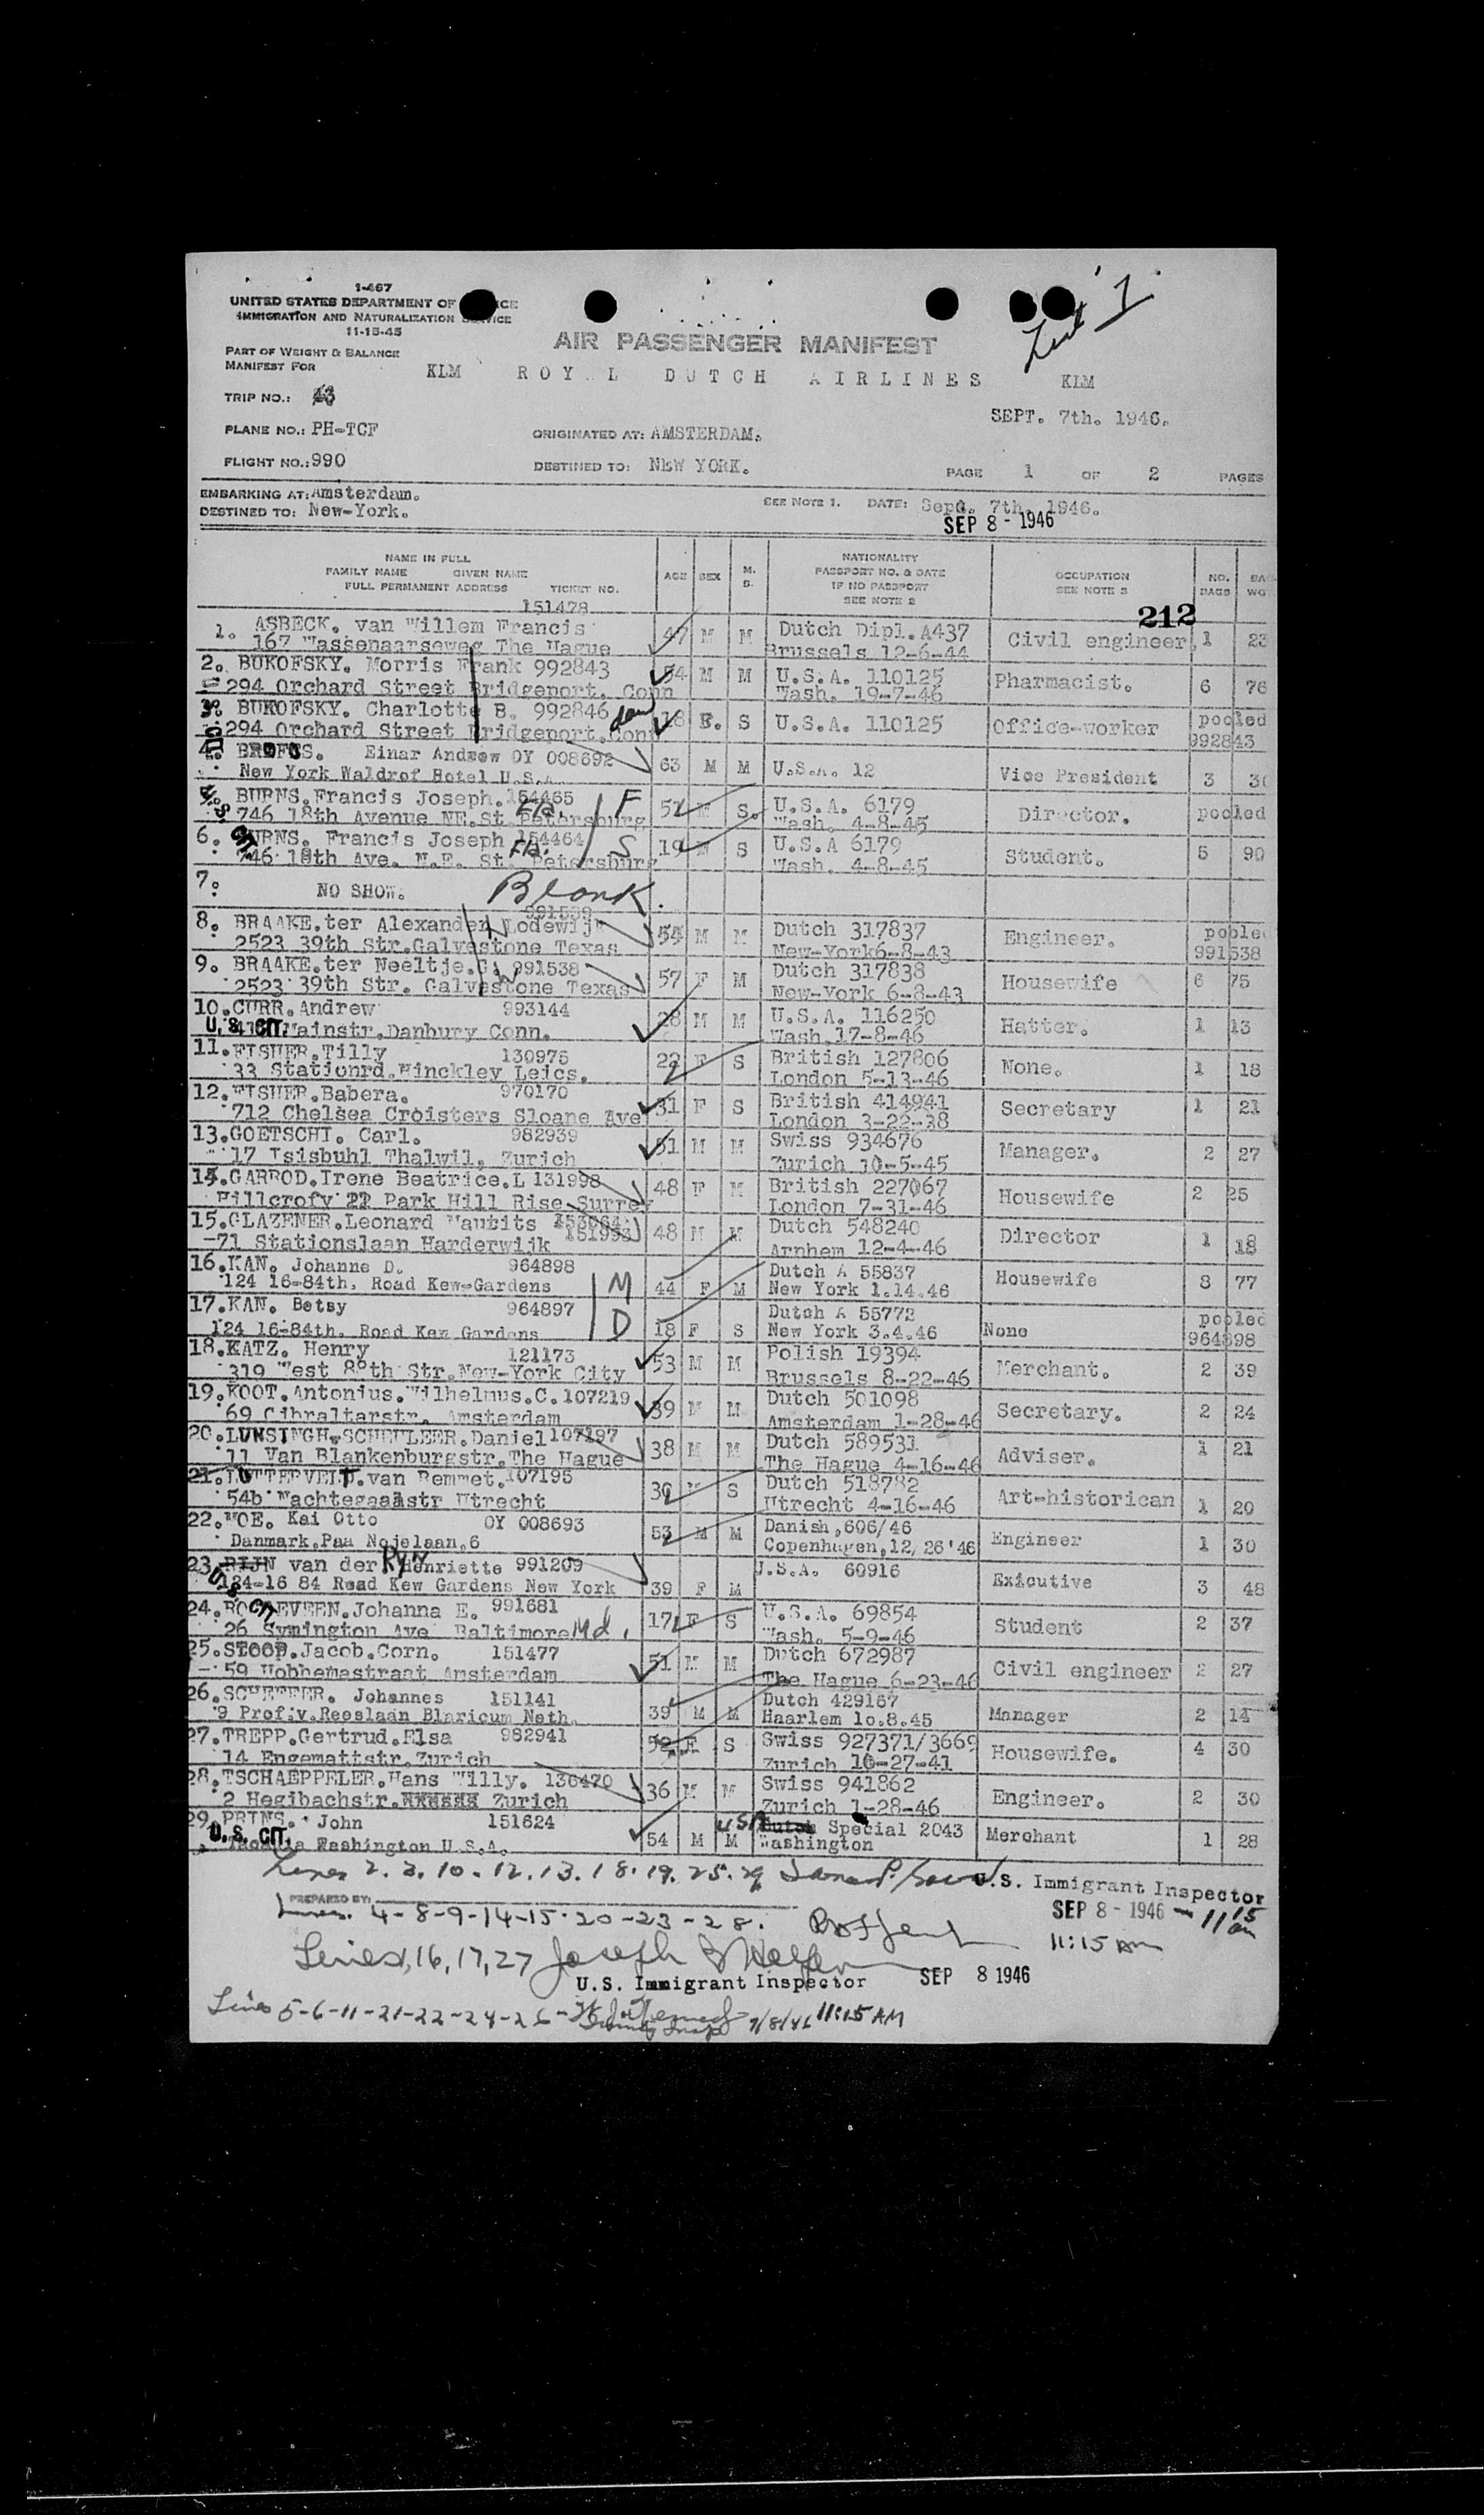 1-467
UNITED STATES DEPARTMENT OF
IMMIGRATION AND NATURALIZATION SERVICE
11-15-45
List 1
AIR PASSENGER MANIFEST
PART OF WEIGHT & BALANCE
MANIFEST FOR
KLM ROYAL DUTCH AIRLINES KLM
TRIP NO.: 43
SEPT. 7th. 1946.
PLANE NO.: PH-TCF ORIGINATED AT: AMSTERDAM.
FLIGHT NO.: 990 DESTINED TO: NEW YORK. PAGE 1 OF 2 PAGES
EMBARKING AT: Amsterdam. SEE NOTE 1. DATE: Sept. 7th. 1946.
DESTINED TO: New-York. SEP 8 - 1946
NAME IN FULL
FAMILY NAME GIVEN NAME
FULL PERMANENT ADDRESS TICKET NO.
AGE SEX M. S.
NATIONALITY
PASSPORT NO. & DATE
IF NO PASSPORT
SEE NOTE 2
OCCUPATION
SEE NOTE 3
NO. BAGS
212
151478
1. ASBECK. van Willem Francis 47 M M Dutch Dipl. A437 Civil engineer 1 23
167 Wassenaarseweg The Hague Brussels 12-6-44
2. BUKOFSKY. Morris Frank 992843 54 M M U.S.A. 110125 Pharmacist. 6 76
294 Orchard Street Bridgeport. Conn Wash. 19-7-46
3. BUKOFSKY. Charlotte B. 992846 dau 18 F. S U.S.A. 110125 Office-worker pooled
294 Orchard Street Bridgeport. Conn 992843
4. Einar Andrew OY 008692 63 M M U.S.A. 12 Vice President 3
New York Waldrof Hotel U.S.A.
5. BURNS. Francis Joseph. 154465 F M S. U.S.A. 6179 Director. pooled
746 18th Avenue NE. St. Petersburg Fla. Wash. 4-8-45
6. BURNS. Francis Joseph 154464 S 19 M S U.S.A 6179 Student. 5 90
746 18th Ave. N.E. St. Petersburg Fla. Wash. 4-8-45
7. NO SHOW. Blank.
991539
8. BRAAKE. ter Alexander Lodewijk 54 M M Dutch 317837 Engineer. pooled
2523 39th Str. Galvestone Texas New-York 6-8-43 991538
9. BRAAKE. ter Neeltje. G. 991538 57 F M Dutch 317838 Housewife 6 75
2523 39th Str. Galvestone Texas New-York 6-8-43
10. CURR. Andrew 993144 28 M M U.S.A. 116250 Hatter. 1 13
U.S. CIT. Mainstr. Danbury Conn. Wash. 17-8-46
11. FISHER. Tilly 130975 22 F S British 127806 None. 1 18
33 Stationrd. Hinckley Leics. London 5-13-46
12. FISHER. Babera. 970170 31 F S British 414941 Secretary 1 21
712 Chelsea Croisters Sloane Ave London 3-22-38
13. GOETSCHI. Carl. 982939 51 M M Swiss 934676 Manager. 2 27
17 Isisbuhl Thalwil, Zurich Zurich 10-5-45
14. GARROD. Irene Beatrice. L 131998 48 F M British 227067 Housewife 2 25
Hillcrofv 21 Park Hill Rise Surrey London 7-31-46
15. GLAZENER. Leonard Maurits 151993 48 M M Dutch 548240 Director 1 18
-71 Stationslaan Harderwijk Arnhem 12-4-46
16. KAN. Johanne D. 964898 M 44 F M Dutch A 55837 Housewife 8 77
124 16-84th. Road Kew-Gardens New York 1.14.46
17. KAN. Betsy 964897 D 18 F S Dutch A 55772 None pooled
124 16-84th. Road Kew Gardens New York 3.4.46 964898
18. KATZ. Henry 121173 53 M M Polish 19394 Merchant. 2 39
319 West 89th Str. New-York City Brussels 8-22-46
19. KOOT. Antonius. Wilhelmus. C. 107219 39 M M Dutch 501098 Secretary. 2 24
69 Gibraltarstr. Amsterdam Amsterdam 1-28-46
20. LUNSINGH-SCHEULEER. Daniel 107197 38 M M Dutch 589531 Adviser. 1 21
11 Van Blankenburgstr. The Hague The Hague 4-16-46
21. LUTTERVELT. van Remmet. 107195 30 M S Dutch 518782 Art-historican 1 20
54b Wachtegaalstr Utrecht Utrecht 4-16-46
22. MOE. Kai Otto OY 008693 53 M M Danish, 606/46 Engineer 1 30
Danmark. Paa Nojelaan. 6 Copenhagen, 12/26'46
23. RIJN van der Ryn Henriette 991209 39 F M U.S.A. 60916 Exicutive 3 48
124-16 84 Road Kew Gardens New York
24. Johanna E. 991681 17 F S U.S.A. 69854 Student 2 37
26 Symington Ave Baltimore Md. Wash. 5-9-46
25. STOOP. Jacob. Corn. 151477 51 M M Dutch 672987 Civil engineer 2 27
59 Hobbemastraat Amsterdam The Hague 6-23-46
26. SCHEFFER. Johannes 151141 39 M M Dutch 429167 Manager 2 14
9 Prof. v. Reeslaan Blaricum Neth. Haarlem 10.8.45
27. TREPP. Gertrud. Elsa 982941 52 F S Swiss 927371/3669 Housewife. 4 30
14 Engemattstr. Zurich Zurich 10-27-41
28. TSCHAEPPELER. Hans Willy. 136470 36 M M Swiss 941862 Engineer. 2 30
2 Hegibachstr. Zurich Zurich 1-28-46
29. PRINS. John 151624 54 M M USA Dutch Special 2043 Merchant 1 28
U.S. CIT. Washington U.S.A. Washington
Lines 2. 3. 10. 12. 13. 18. 19. 25. 29 U.S. Immigrant Inspector
PREPARED BY:
Lines. 4-8-9-14-15-20-23-28. SEP 8 - 1946
11:15 am
Lines 1, 16, 17, 27 Joseph
U.S. Immigrant Inspector SEP 8 1946
Lines 5-6-11-21-22-24-26 9/8/46 11:15 AM